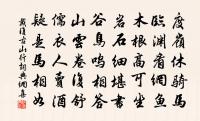 度嶺休騎馬
臨淵看網魚
木根高可坐
岩石細堪書
谷鳥鳴相答
山雲卷復舒
儒衣人賣酒
疑是馬相如
戴復古山行詞典網集